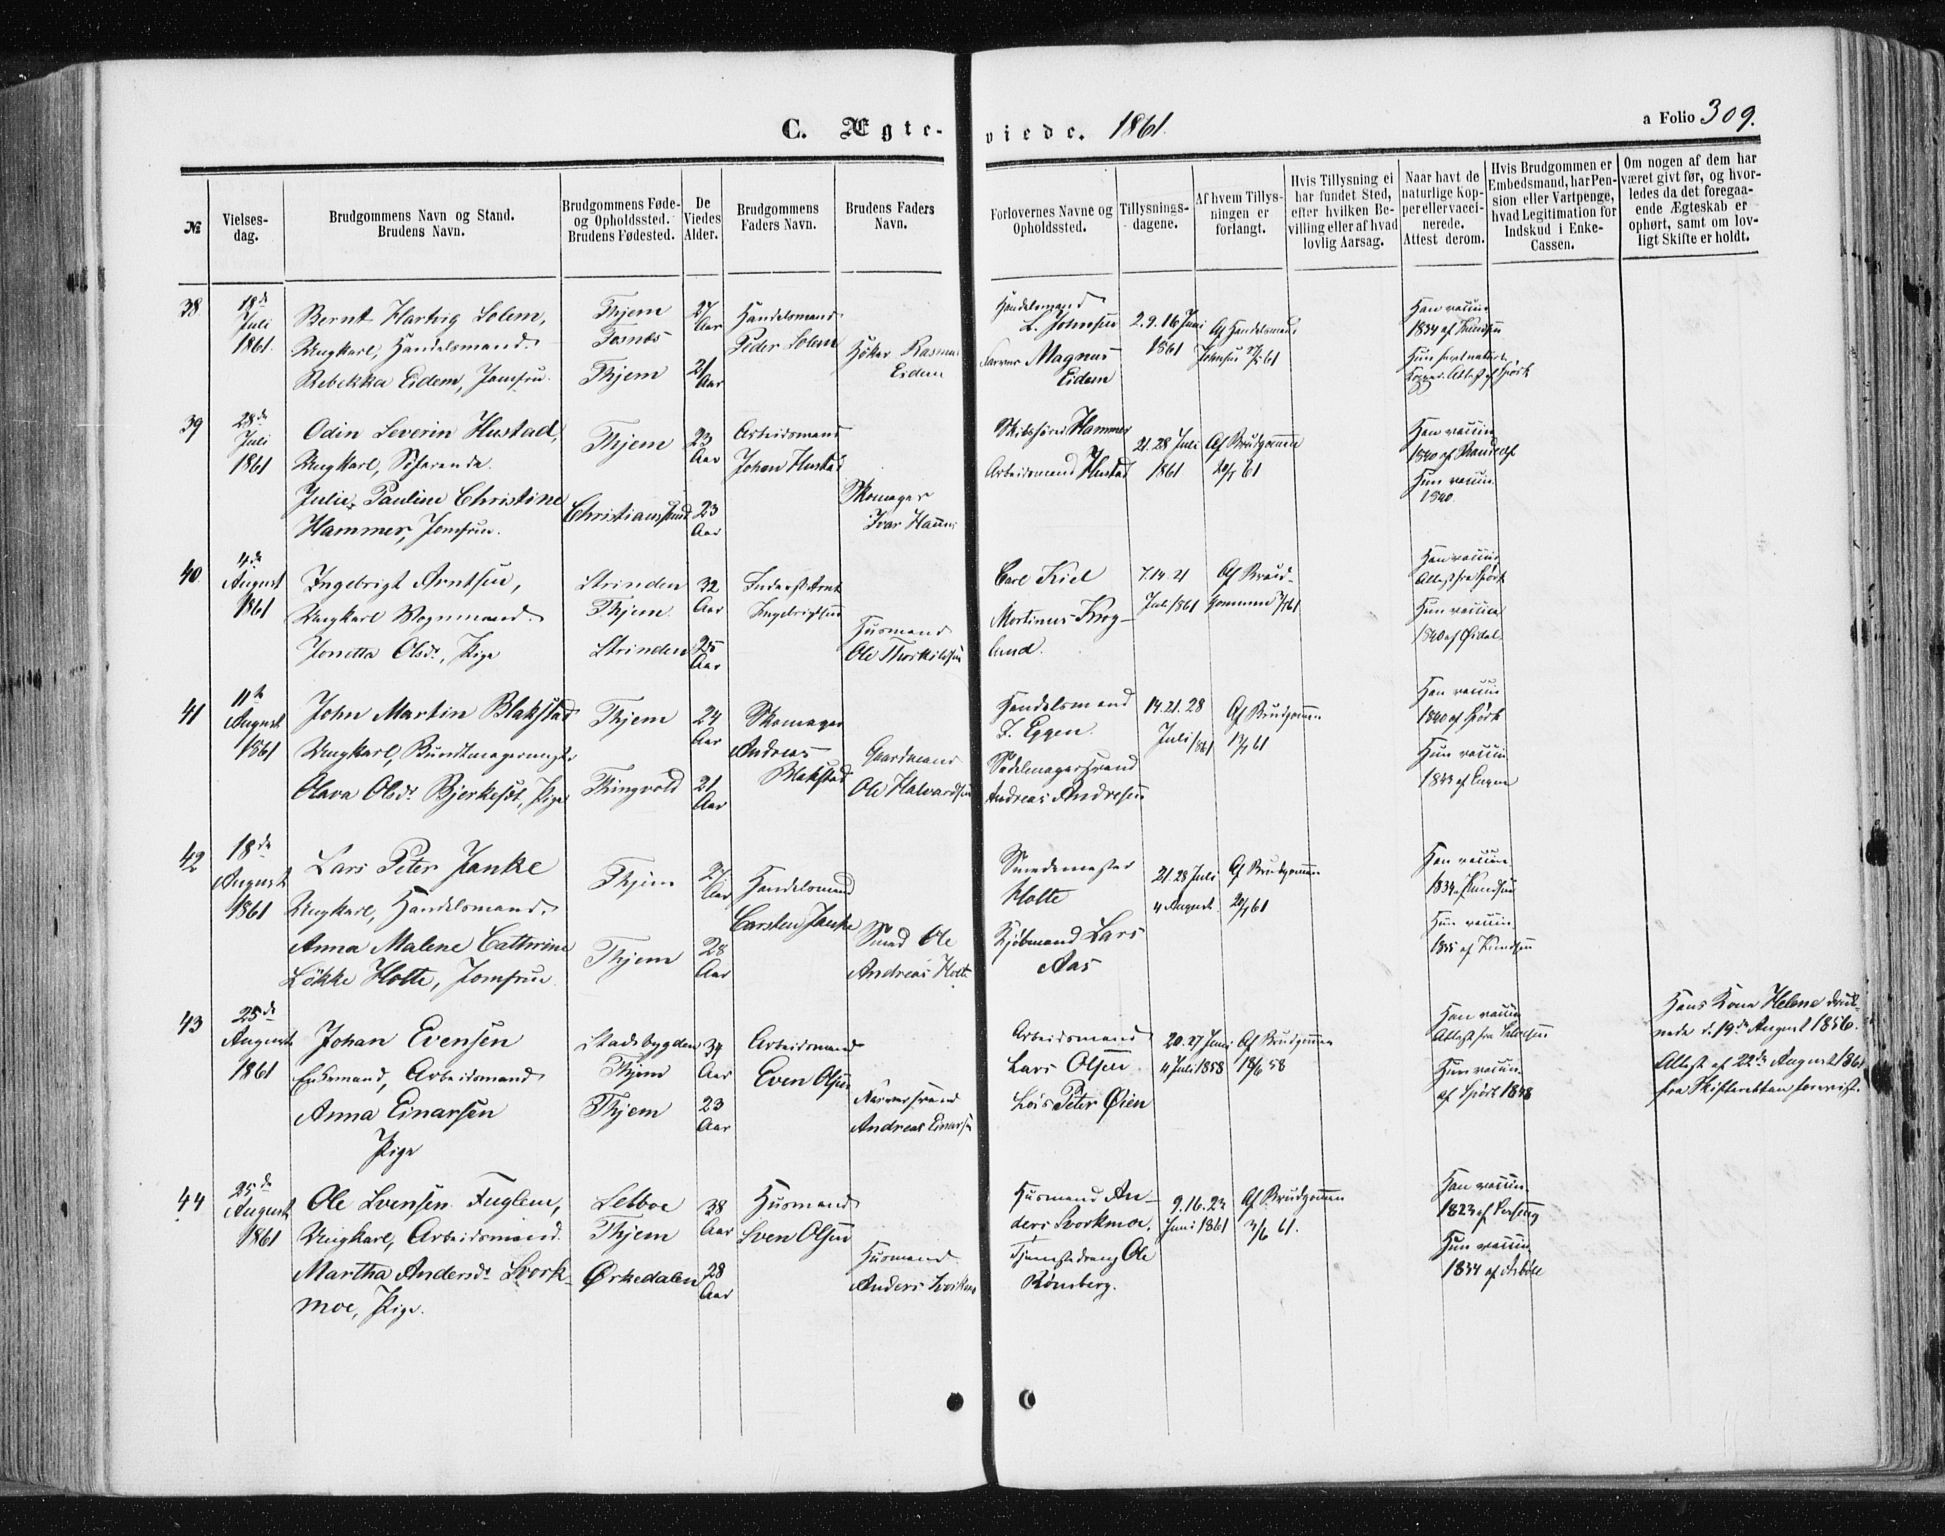 C. Ægte- viede. 1861.
a Folio 309.
№
Vielses-
dag.
Brudgommens Navn og Stand.
Brudens Navn.
Brudgommens Føde-
og Opholdssted.
Brudens Fødested.
De
Viedes
Alder.
Brudgommens
Faders Navn.
Brudens Faders
Navn.
Forlovernes Navne og
Opholdssted.
Tillysnings-
dagene.
Af hvem Tillys-
ningen er
forlangt.
Hvis Tillysning ei
har fundet Sted,
efter hvilken Be-
villing eller af hvad
lovlig Aarsag.
Naar havt de
naturlige Kop-
per eller vacci-
nerede.
Attest derom.
Hvis Brudgommen er
Embedsmand, har Pen-
sion eller Vartpenge,
hvad Legitimation for
Indskud i Enke-
Cassen.
Om nogen af dem har
været givt før, og hvor-
ledes da det foregaa-
ende Ægteskab er
ophørt, samt om lov-
ligt Skifte er holdt.
38
18de
Juli
1861.
Bernt Hartvig Solem,
Ungkarl, Handelsmand.
Rebekka Eidem, Jomfru.
Thjem
Fosnæs
Thjem
27
Aar
21
Aar
Handelsmand
Peder Solem
Høker Rasmus
Eidem
Handelsmand
L. Johnsen
Farver Magnus
Eidem
2.9.16 Juni
1861
Af Handelsmand
Johnsen 27/5 61
Han vaccin
1834 af Knudsen
39
28de
Juli
1861
Odin Severin Hustad,
Ungkarl, Søfarende.
Julie Pauline Christine
Hammer, Jomfrue.
Thjem
Christianssund
23
Aar
23
Aar
Arbeidsmand
Johan Hustad
Skomager
Ivar Hammer
Skibsfører Hammer
Arbeidsmand Hustad
21.28 Juli
1861
Af Brudgommen
20/7 61
Han vaccin
Hun vaccin.
1840.
40
4de
August
1861
Ingebrigt Arntsen,
Ungkarl Vognmand.
Jonetta Olsdr., Pige
Strinden
Thjem.
Strinden
32
Aar
25
Aar
Inderst Arnt
Ingebrigtsen
Husmand
Ole Thorkildsen
Carl Kiel
Martinus Krog-
lund.
7.14.21
Juli 1861
Af Brud-
gommen
Han vaccin
Hun vaccin
41
11te
August
1861
John Martin Blakstad
Ungkarl, Bundtmagersvend.
Olava Olsdr. Bjerkeset, Pige
Thjem
Thingvold
24
Aar
21
Aar
Skomager
Andreas
Blakstad
Gaardmand
Ole Halvardsen
Handelsmand
Eggen.
Sadelmagersvend
Andreas Andresen
14.21.28
Juli 1861
Af Brudgommen
13/7 61
Han vaccin
Hun vaccin
42
18de
August
1861
Lars Peter Janke
Ungkarl, Handelsmand.
Anna Malene Cathrine
Løkke Holte, Jomfrue
Thjem
Thjem
27
Aar
28
Aar
Handelsmand
Carsten Janke
Smed Ole
Andreas Holte
Smedemester
Holte
Kjøbmand Lars
Aas
21.28 Juli
4 August
Af Brudgommen
20/7 61
Han vaccin.
1834 af Knudsen
Hun vaccin
1835 af Knudsen
43
25de
August
1861
Johan Evensen
Enkemand, Arbeidsmand
Anna Einarsen
Pige
Stadsbygden
Thjem
Thjem
34
Aar
23
Aar
Arbeidsmand
Even Olsen
Andreas Einarsen
Arbeidsmand
Lars Olsen
Peter Øien
20.27 Juni
4 Juli 1858
Af Brudgommen
18/6 58
Han vaccin
Hun vaccin.
Hans Kone Helene druk-
nede d. 19de August 1856.
Attest af 22de August 1861
fra Skifteretten forevist.
44
25de
August
1861
Ole Svensen Fuglem,
Ungkarl, Arbeidsmand.
Martha Andersdr. Svork-
moe, Pige.
Selboe
Thjem
Ørkedalen
38
Aar
28
Aar
Husmand
Sven Olsen
Husmand
Anders Svorkmoe
Husmand An-
ders Svorkmoe.
Tjenestedreng Ole
Rønsberg.
9.16.23
Juni 1861
Af Brudgommen
3/6 61.
Han vaccin.
Hun vaccin